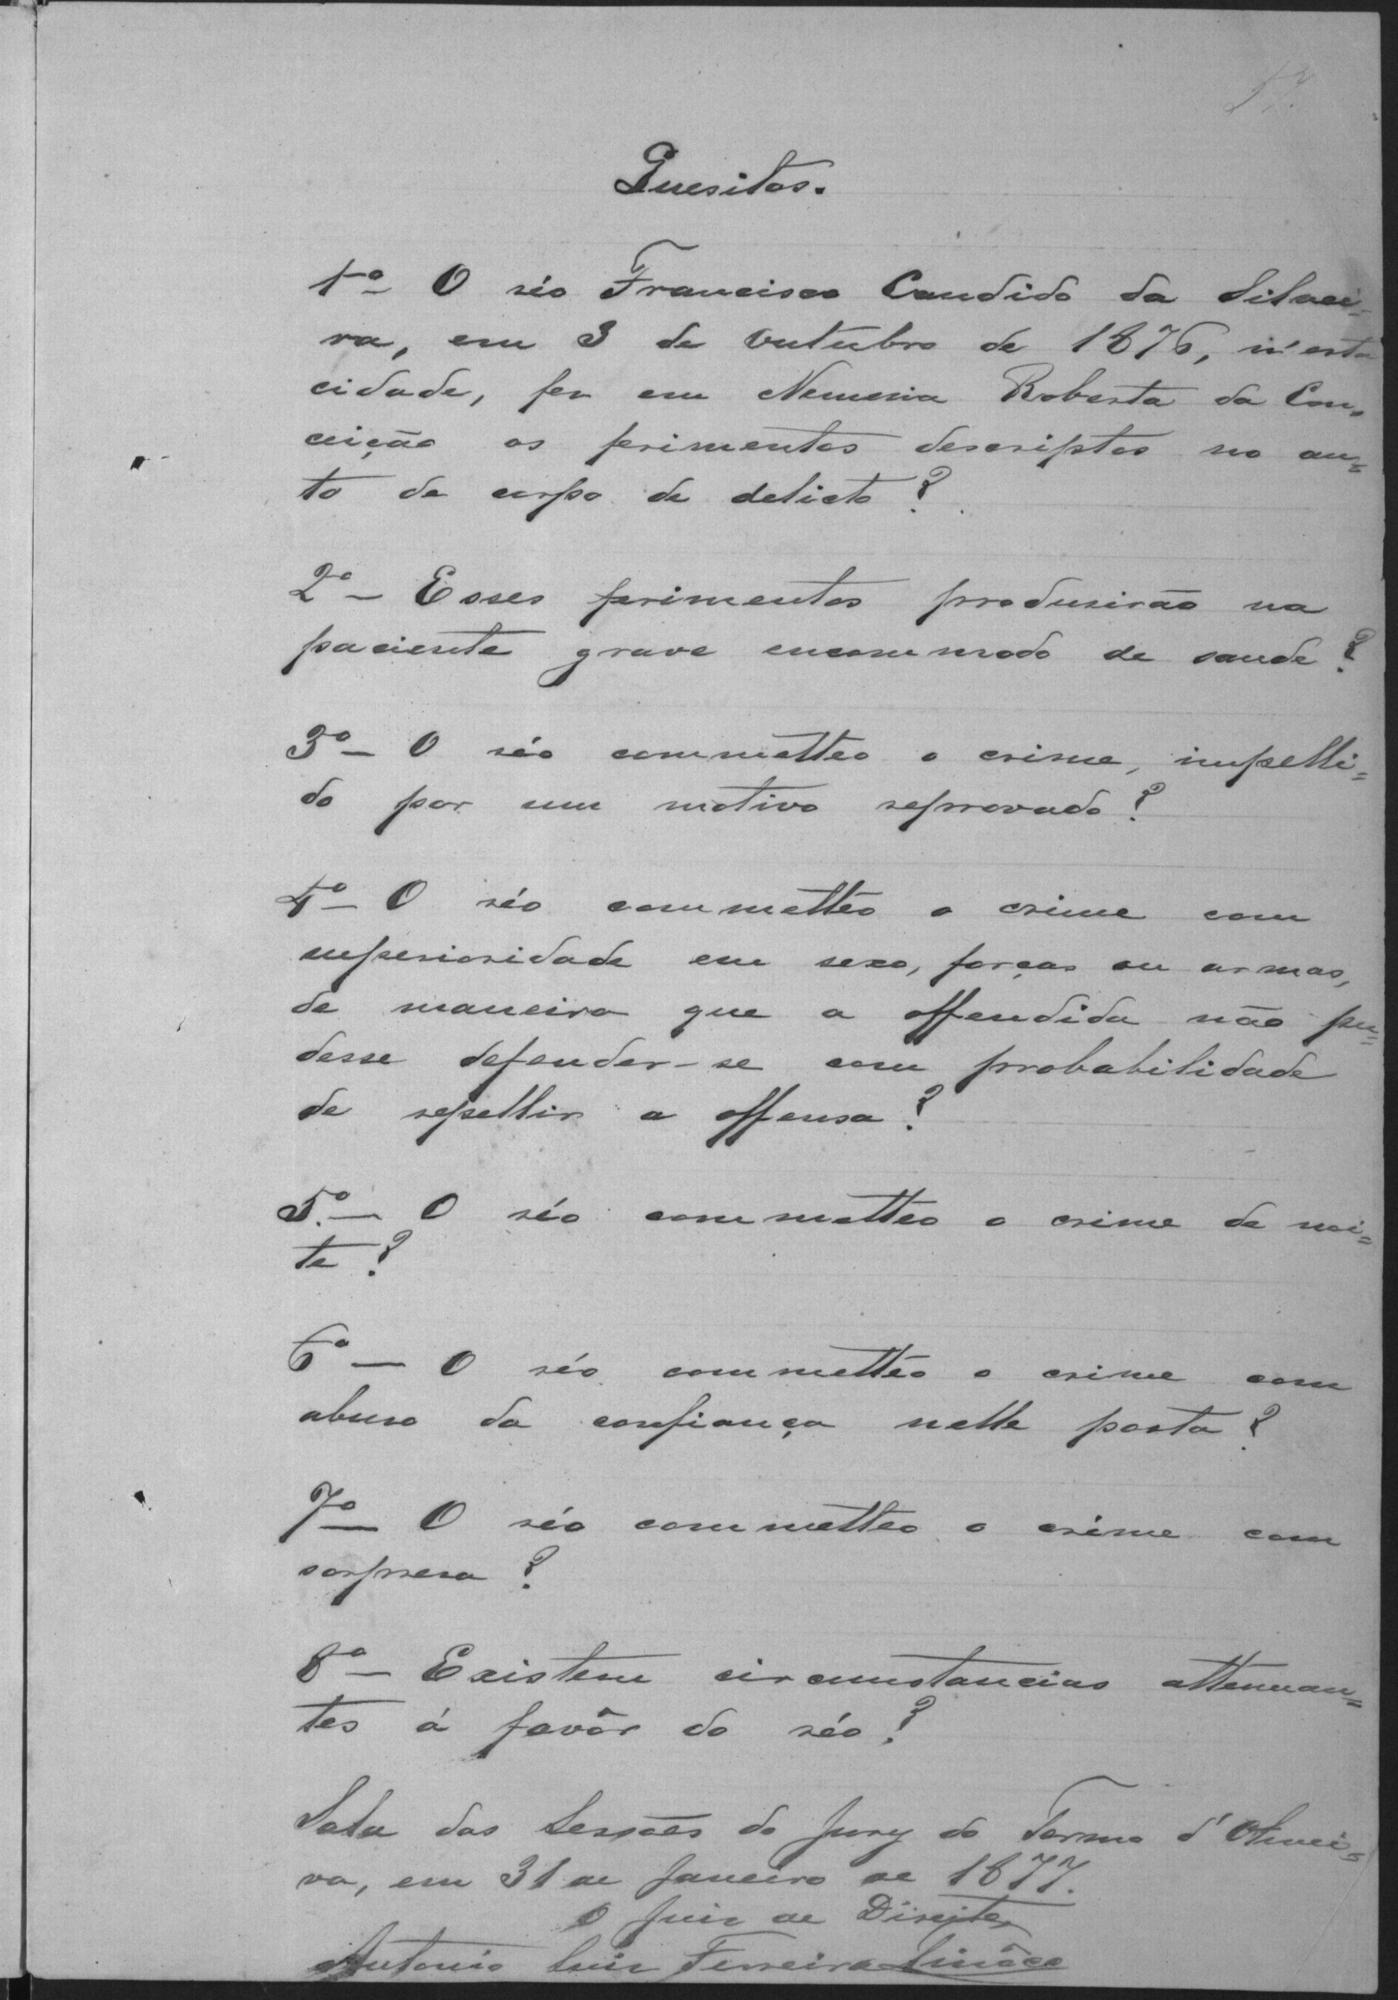 Quesitos.
1º — O réo Francisco Candido da Silvei-
ra, em 3 de Outubro de 1876, n'esta
cidade, fez em Nemesia Roberta da Con-
ceição os ferimentos descriptos no au=
to de corpo de delicto?
2º — Esses ferimentos produsirão na
paciente grave encommodo de saude?
3º — O réo commetteo o crime, impelli=
do por um motivo reprovado?
4º — O réo commettêo o crime com
superioridade em sexo, forças ou armas,
de maneira que a offendida não pu=
desse defender-se com probabilidade
de repellir a offensa?
5º — O réo commetteo o crime de noi=
te?
6º — O réo commettêo o crime com
abuso da confiança nelle posta?
7º — O réo commetteo o crime com
sorpresa?
8º — Existem circumstancias attenuan=
tes á favôr do réo?
Sala das Sessões do Jury do Termo d'Olivei=
ra, em 31 de Janeiro de 1877.
O Juiz de Direito,
Antonio Luiz Ferreira Tinôco